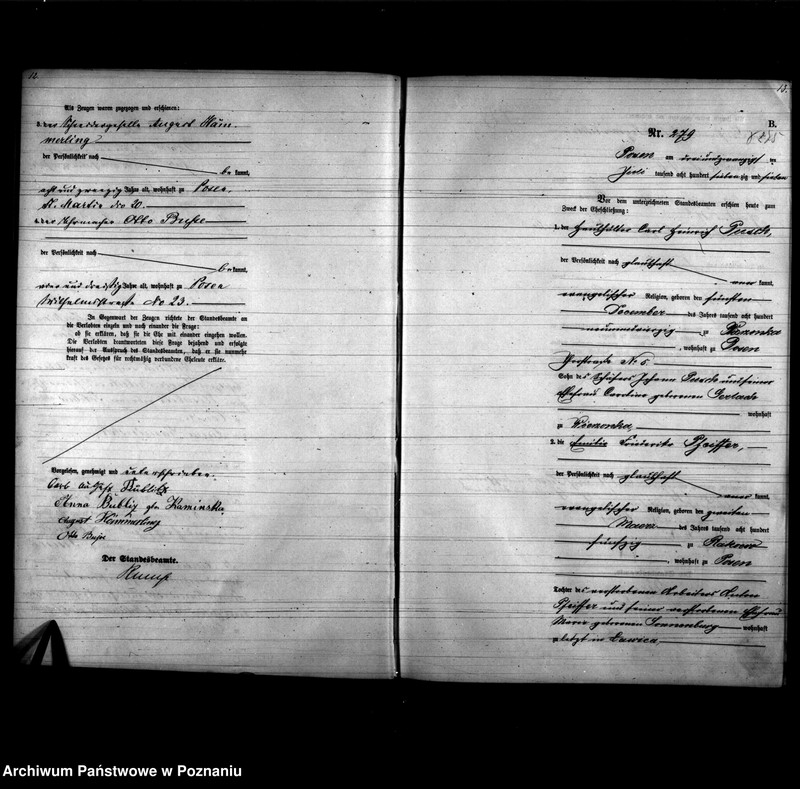 12.
Als Zeugen waren zugezogen und erschienen:
3. der Schneidergeselle August Häm-
merling
der Persönlichkeit nach
be kannt,
acht und zwanzig Jahre alt, wohnhaft zu Posen
St. Martin No 20.
4. der Otto Busse
der Persönlichkeit nach
be kannt,
vier und dreißig Jahre alt, wohnhaft zu Posen
Wilhelmsstraße No 23.
In Gegenwart der Zeugen richtete der Standesbeamte an
die Verlobten einzeln und nach einander die Frage:
ob sie erklären, daß sie die Ehe mit einander eingehen wollen.
Die Verlobten beantworteten diese Frage bejahend und erfolgte
hierauf der Ausspruch des Standesbeamten, daß er sie nunmehr
kraft des Gesetzes für rechtmäßig verbundene Eheleute erkläre.
Vorgelesen, genehmigt und unterschrieben
Carl Bublitz
Anna Bublitz geb. Kaminska
August Hämmerling
Otto Busse
Der Standesbeamte.
13.
B.
Nr. 279
Posen am dreiundzwanzigsten
Juli tausend acht hundert siebenzig und sieben
Vor dem unterzeichneten Standesbeamten erschien heute zum
Zweck der Eheschließung:
1. der Haushälter Carl Heinrich
der Persönlichkeit nach glaubhaft
aner kannt,
evangelischer Religion, geboren den fünften
December des Jahres tausend acht hundert
neunundvierzig zu
, wohnhaft zu Posen
No 5.
Sohn des Schäfers Johann und seiner
Ehefrau Caroline geborenen
wohnhaft
zu
2. die Emilie Pfeiffer,
der Persönlichkeit nach glaubhaft
aner kannt,
evangelischer Religion, geboren den zweiten
des Jahres tausend acht hundert
fünfzig zu
, wohnhaft zu Posen
Tochter des verstorbenen Arbeiters Anton
Pfeiffer und seiner verstorbenen Ehefrau
geborenen Sonnenburg wohnhaft
zuletzt in
Archiwum Państwowe w Poznaniu